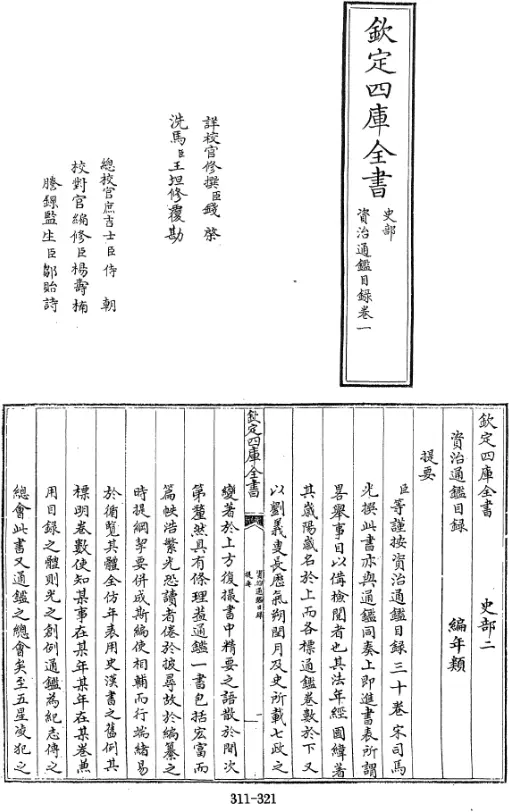 欽定四庫全書
史部
資治通鑑目錄卷一
詳校官修撰臣錢棨
洗馬臣王坦修覆勘
總校官庶吉士臣侍朝
校對官編修臣楊壽楠
謄錄監生臣鄒貽詩
欽定四庫全書 史部二
資治通鑑目錄 編年類
提要
臣等謹按資治通鑑目錄三十卷宋司馬
光撰此書亦與通鑑同奏上即進書表所謂
畧舉事目以備檢閱者也其法年經國緯著
其歲陽歲名於上而各標通鑑卷數於下又
以劉羲叟長歴氣朔閏月及史所載七政之
欽定四庫全書
資治通鑑目錄
提要
一
變著於上方復撮書中精要之語散於間次
第釐然具有條理葢通鑑一書包括宏富而
篇帙浩繁光恐讀者倦於披尋故於編纂之
時提綱挈要併成斯編使相輔而行端緒易
於循覽其體全仿年表用史漢書之舊例其
標明卷數使知某事在某年某年在某卷兼
用目錄之體則光之創例通鑑為紀志傳之
總會此書又通鑑之總會矣至五星凌犯之
311-321